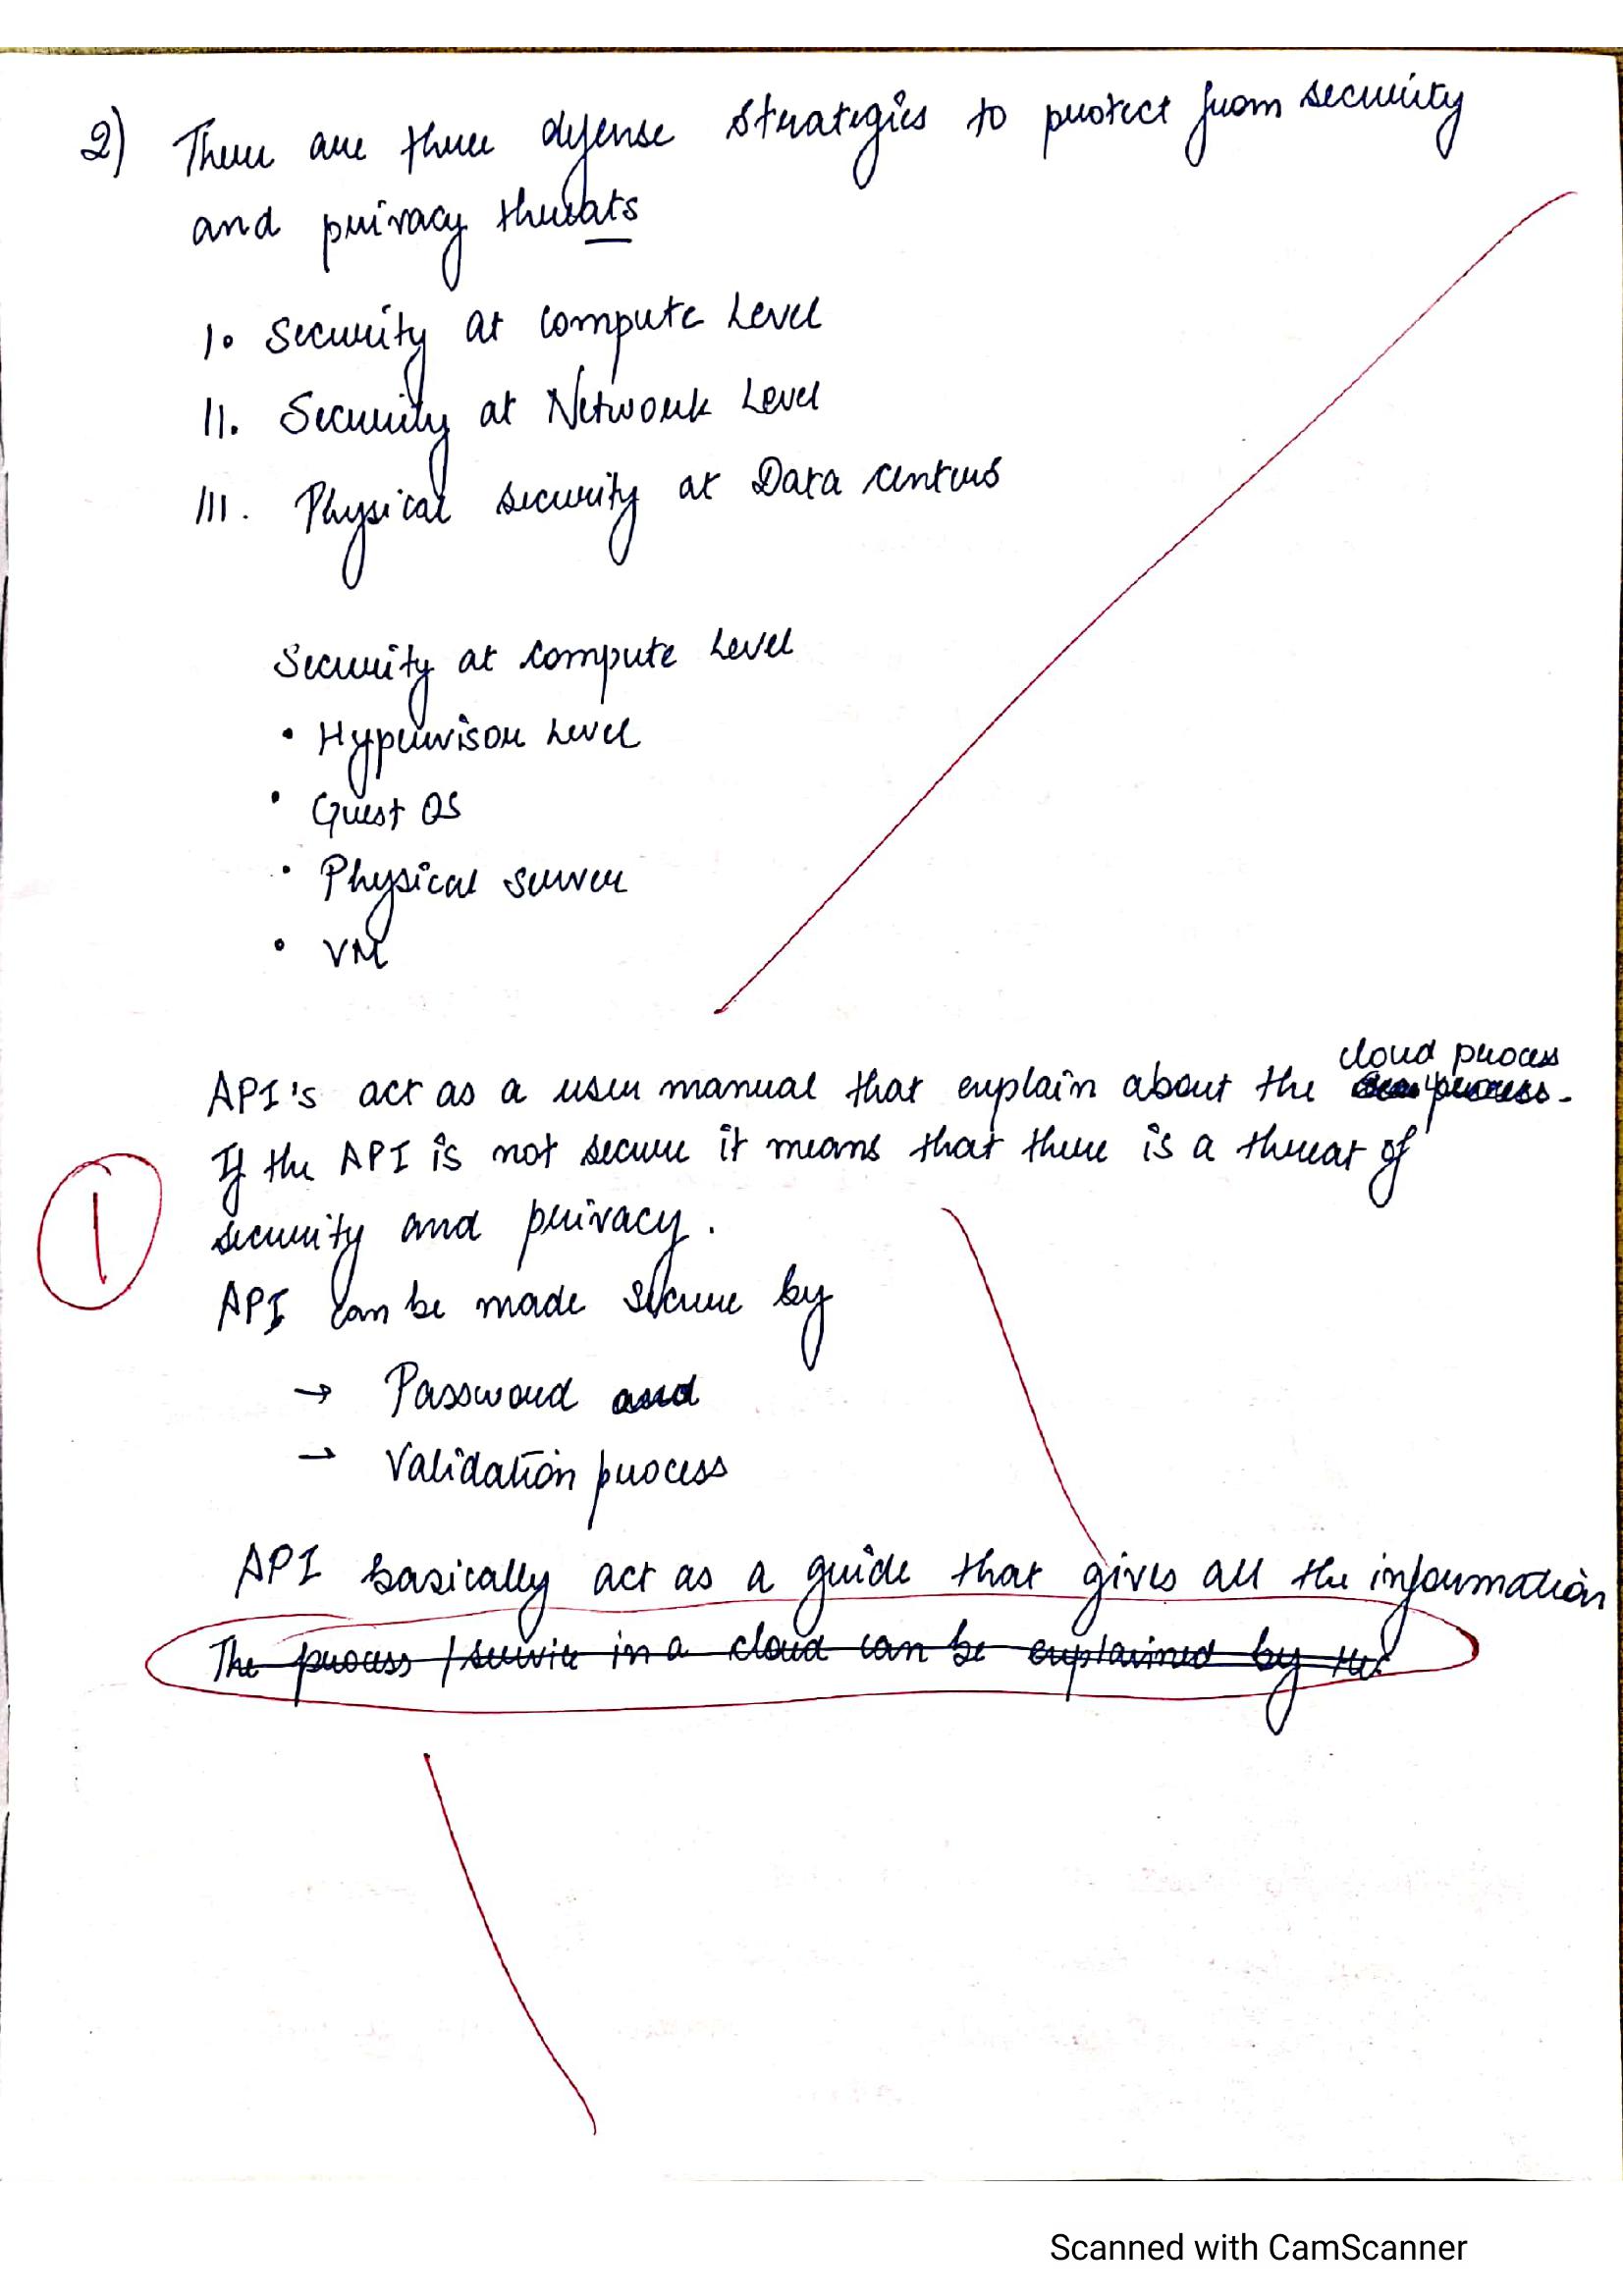 2) There are three defense strategies to protect from security
and privacy threats
I. Security at compute Level
II. Security at Network Level
III. Physical security at Data centers
Security at compute Level
• Hypervisor Level
• Guest OS
• Physical server
• VM
cloud process
API's act as a user manual that explain about the process.
If the API is not secure it means that there is a threat of
security and privacy.
1
API can be made secure by
→ Password and
→ Validation process
API basically act as a guide that gives all the information
The process / service in a cloud can be explained by the
Scanned with CamScanner